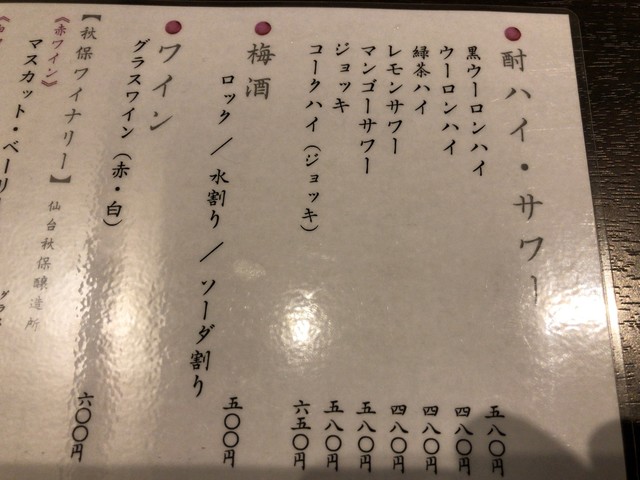 酎ハイ・サワー
黒ウーロンハイ 五八〇円
ウーロンハイ 四八〇円
緑茶ハイ 四八〇円
レモンサワー 四八〇円
マンゴーサワー 五八〇円
ジョッキ 五八〇円
コークハイ（ジョッキ） 六五〇円
梅酒
ロック／水割り／ソーダ割り 五〇〇円
ワイン
グラスワイン（赤・白） 六〇〇円
【秋保ワイナリー】 仙台秋保醸造所
《赤ワイン》
マスカット・ベーリー
グラス